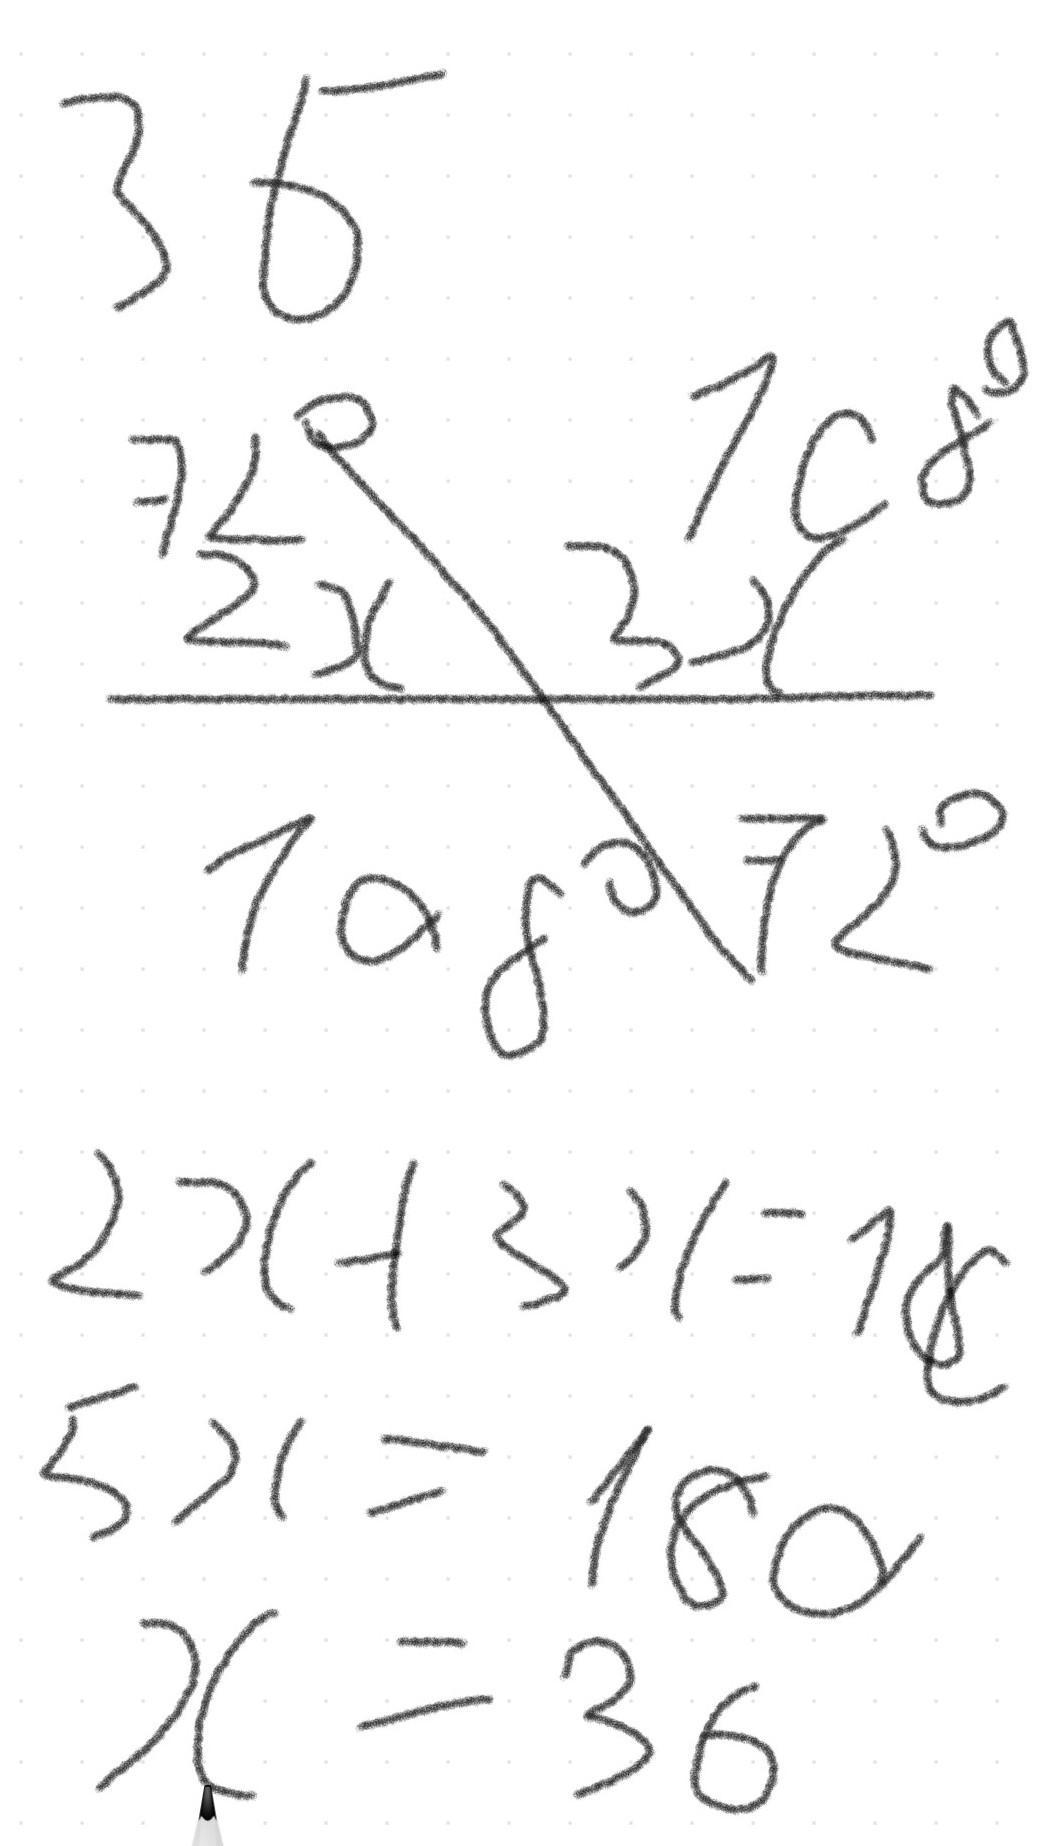 36
72° 108°
2x 3x
108° 72°
2x+3x=180
5x=180
x=36